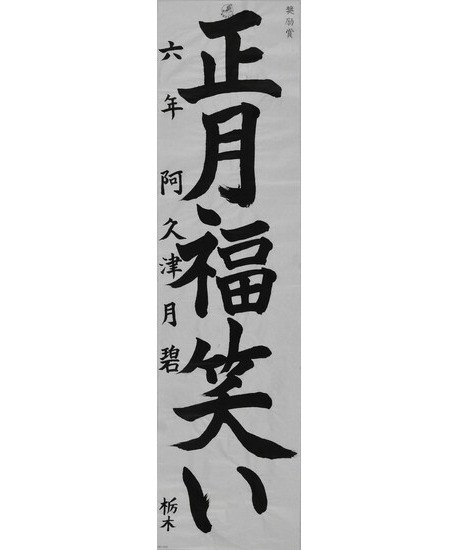 奨励賞
正月福笑い
六年 阿久津月碧
栃木